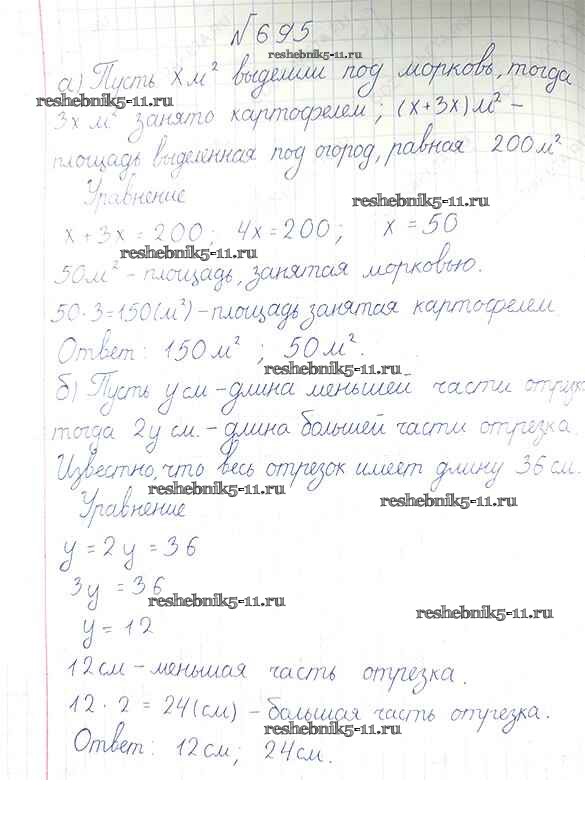 №695
reshebnik5-11.ru
а) Пусть x м² выделили под морковь, тогда
reshebnik5-11.ru
3x м² занято картофелем; (x+3x) м² –
площадь выделенная под огород, равная 200 м²
Уравнение
reshebnik5-11.ru
x + 3x = 200; 4x = 200; x = 50
reshebnik5-11.ru
50 м² – площадь, занятая морковью.
50·3=150(м²) – площадь занятая картофелем
Ответ: 150 м²; 50 м².
reshebnik5-11.ru
б) Пусть y см – длина меньшей части отрезк
тогда 2y см. – длина большей части отрезка.
Известно, что весь отрезок имеет длину 36 см.
reshebnik5-11.ru
reshebnik5-11.ru
Уравнение
y = 2y = 36
3y = 36
reshebnik5-11.ru
reshebnik5-11.ru
y = 12
12 см – меньшая часть отрезка.
12 · 2 = 24 (см) – большая часть отрезка.
reshebnik5-11.ru
Ответ: 12 см; 24 см.